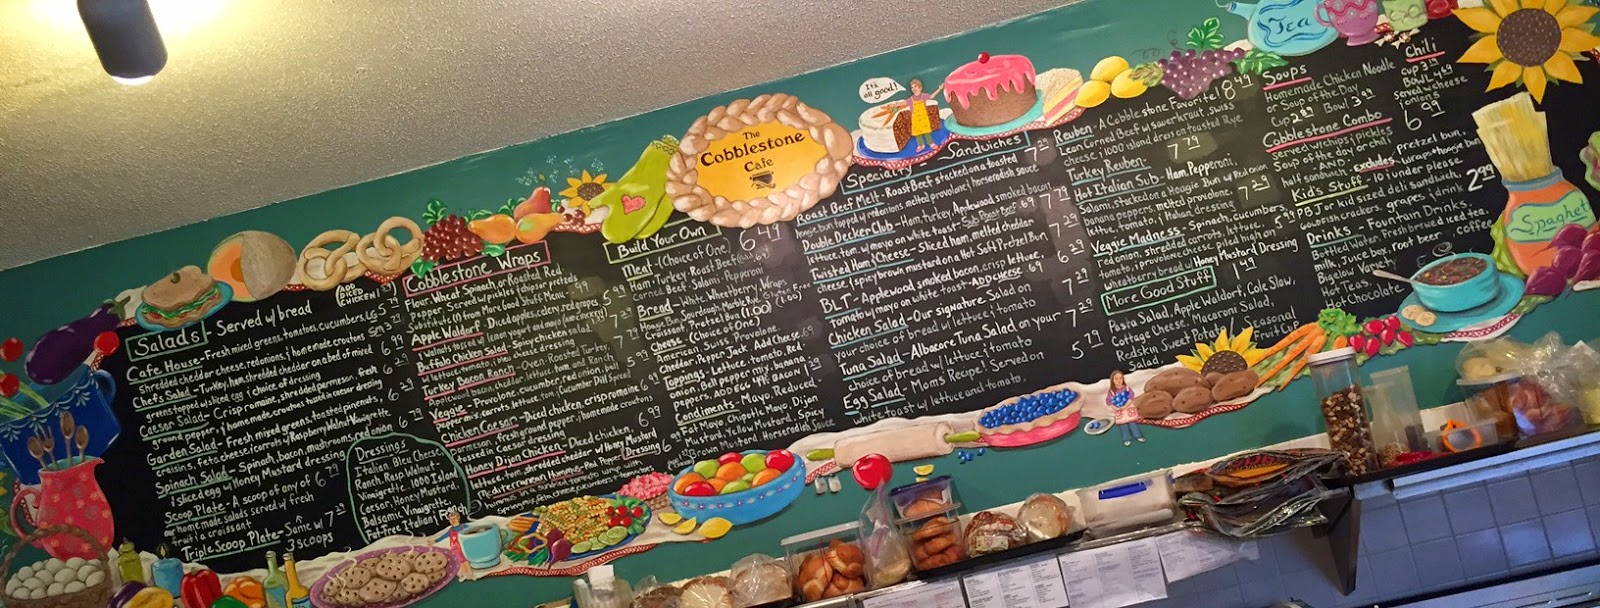 The
Cobblestone
Cafe
Salads - Served w/ bread
ADD
DICED
CHICKEN!
Cafe House - Fresh mixed greens, tomatoes, cucumbers
shredded cheddar cheese, red onions, & homemade croutons
Chefs Salad - Turkey, ham, shredded cheddar on a bed of mixed
greens topped w/ sliced egg & choice of dressing
Caesar Salad - Crisp romaine, shredded parmesan, fresh
ground pepper, & homemade croutons tossed in caesar dressing
Garden Salad - Fresh mixed greens, toasted pinenuts,
raisins, feta cheese, & carrots w/ Raspberry Walnut Vinaigrette
Spinach Salad - Spinach, bacon, mushrooms, red onion
& sliced egg w/ Honey Mustard dressing
Scoop Plate - A scoop of any of
our homemade salads served w/ fresh
fruit & a croissant
Triple Scoop Plate - Same w/
3 scoops
Dressings
Italian, Bleu Cheese,
Ranch, Rasp. Walnut
Vinaigrette, 1000 Island,
Caesar, Honey Mustard,
Balsamic Vinaigrette
Fat-Free Italian & Ranch
Cobblestone Wraps
Flour, Wheat, Spinach, or Roasted Red
Pepper - Served w/ pickles & chips or pretzels
Substitute (1) from More Good Stuff Menu
Apple Waldorf - Diced apples, celery, red grapes
& walnuts tossed w/ lemon yogurt and mayo (w/ chicken)
Buffalo Chicken Salad - Spicy chicken salad,
w/ lettuce, tomato, & bleu cheese dressing
Turkey Bacon Ranch - Oven Roasted Turkey
Applewood bacon, cheddar, lettuce, tom, and Ranch
Veggie - Provolone, cucumber, red onion, ban.
peppers, carrots, lettuce, tom, & Cucumber Dill Spread
Chicken Caesar - Diced chicken, crisp romaine
parmesan, fresh ground pepper, & homemade croutons
tossed in Caesar dressing
Honey Dijon Chicken - Diced chicken,
lettuce, tom, shredded cheddar w/ Honey Mustard
Dressing
Mediterranean Hummus - Red Pepper
hummus in a sundried tomato wrap with
Spring mix, feta cheese, cucumbers & tomatoes
Build Your Own
6.49
Meat - (Choice of One)
Ham - Turkey - Roast Beef
Corned Beef - Salami - Pepperoni
Bread - White, Wheatberry, Wraps,
Hoagie Bun, Sourdough, Marble Rye
Croissant - Pretzel Bun (1.00)
Cheese - (Choice of One)
American, Swiss, Provolone,
Cheddar, Pepper Jack
Toppings - Lettuce, tomato, Red
Onion, Bell pepper mix, banana
Peppers
Condiments - Mayo, Reduced-
Fat Mayo, Chipotle Mayo, Dijon
Mustard, Yellow Mustard, Spicy
Brown Mustard, Horseradish Sauce
It's
all good!
Specialty Sandwiches
Roast Beef Melt - Roast Beef stacked on a toasted
hoagie bun topped w/ red onions, melted provolone & horseradish sauce
Double Decker Club - Ham, turkey, Applewood smoked bacon,
lettuce, tom, w/ mayo on white toast
Twisted Ham & Cheese - Sliced ham, melted cheddar
cheese & spicy brown mustard on a Hot Soft Pretzel Bun
BLT - Applewood smoked bacon, crisp lettuce,
tomato w/ mayo on white toast. ADD CHEESE .69
Chicken Salad - Our signature Salad on
your choice of bread w/ lettuce & tomato
Tuna Salad - Albacore Tuna Salad on your
choice of bread w/ lettuce & tomato
Egg Salad - Mom's Recipe! Served on
white toast w/ lettuce and tomato.
Reuben - A Cobblestone Favorite! 8.49
Lean Corned Beef w/ sauerkraut, swiss
cheese, & 1000 island dress on toasted Rye
Turkey Reuben - 7.79
Hot Italian Sub - Ham, Pepperoni,
Salami, stacked on a Hoagie Bun w/ Red onion
banana peppers, melted provolone,
lettuce, tomato, & Italian dressing 7.29
Veggie Madness - Spinach, cucumbers,
red onion, shredded carrots, lettuce,
tomato, & provolone piled high on
wheatberry bread w/ Honey Mustard Dressing
More Good Stuff! 1.49
Pasta Salad, Apple Waldorf, Cole Slaw,
Cottage Cheese, Macaroni Salad,
Redskin Sweet Potato
Salad
Seasonal
Fruit Cup
Tea
Soups
Homemade Chicken Noodle
or Soup of the Day
Cup 2.89 Bowl 3.99
Cobblestone Combo
served w/ chips, pickles 6.99
Soup of the day or chili
AND
half sandwich - Excludes pretzel bun,
wraps & hoagie bun
Kid's Stuff - 10 & under please
PB Jor kid sized deli sandwich,
Goldfish crackers, grapes & drink 2.99
Drinks - Fountain Drinks,
Bottled Water, Fresh brewed iced tea,
milk, Juice box, root beer, coffee
Bigelow Variety
Hot Teas,
Hot Chocolate
Chili
Cup 3.19
Bowl 4.69
served w/ cheese
& onions
Spaghet